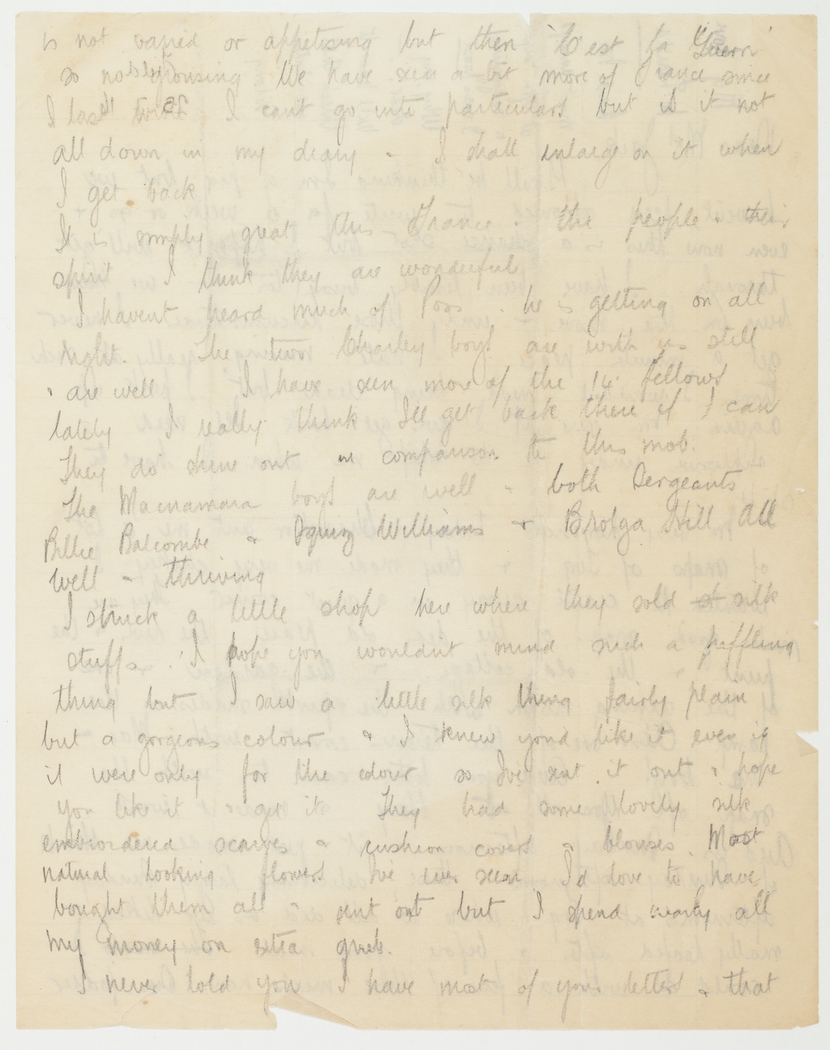 is not varied or appetising but then "C'est la Guerr"
so no grousing We have seen a bit more of France since
I last wrote I cant go into particulars but is it not
all down in my diary - I shall enlarge on it when
I get back
It is simply great this France - the people & their
spirit I think they are wonderful
I havent heard much of Poss. he is getting on all
right. The two Charley boys are with us still
& are well I have seen more of the 14th fellows
lately I really think I'll get back there if I can
They do shine out in comparison to this mob.
The Macnamara boys are well - both Sergeants
Billie Balcombe & Williams & Brolga Hill all
well & thriving
I struck a little shop here where they sold st silk
stuffs. I hope you wouldn't mind such a piffling
thing but I saw a little silk thing fairly plain
but a gorgeous colour & I knew you'd like it even if
it were only for the colour so I've sent it out & hope
you like it & get it They had some lovely silk
embroidered scarves & cushion covers & blouses. Most
natural looking flowers I've ever seen I'd love to have
bought them all & sent out but I spend nearly all
my money on extra grub.
I never told you I have most of your letters & that